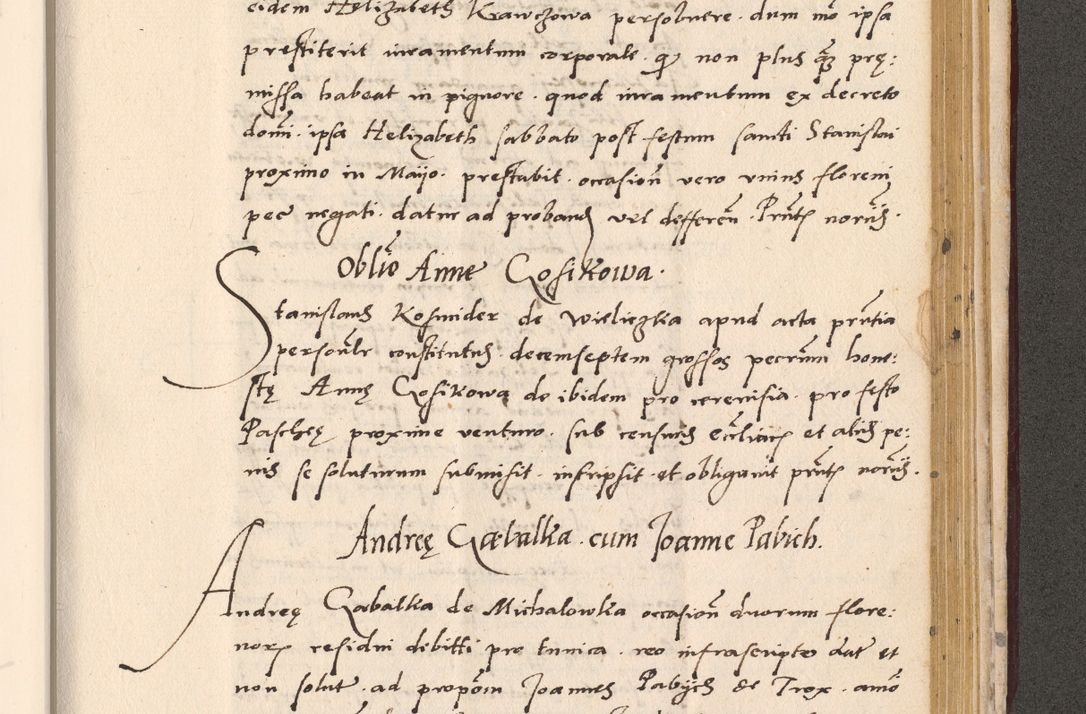 eidem Helizabeth Krawczowa persolvere. dum mō ipsa
prestiterit iuramentum corporale. qᷓ non plus quā prę:
missa habeat in pignore. quod iuramentum ex decreto
domī. ipsa Helizabeth sabbato post festum sancti Stanislai
proximo in Maijo. prestabit. occasioñ vero unius floreni
per negati. datur ad proband vel defferēn. Prñtꝭ norijs.
Oblīo Anne Gosikowa.
Stanislaus Kosmider de Wieliczka apud acta prñtia
personālr constitutus. decemseptem grossos pecuñm hone:
stę Annę Gosikowa de ibidem pro cerevisia. pro festo
Paschę proxime venturo. sub censuris ecclīacꝭ et alijs pe:
nis se soluturum submisit. inscripsit. et obligavit prñtꝭ norijs.
Andreę Gabalka. cum Joanne Pabich.
Andreę Gabalka de Michalowka occasioñ duorum flore:
norꝝ residui debitti pro tunica. reo infrascripto dat et
non solut. ad propōm Joannes Pabijch de Trox. amō